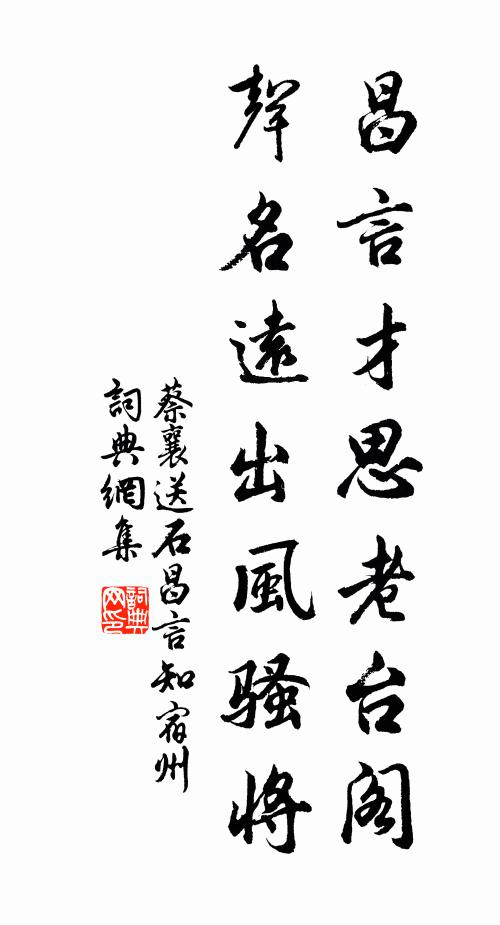 昌言才思老台阁
聲名遠出風騷將
蔡襄送石昌言知宿州
詞典網集
詞典
网印